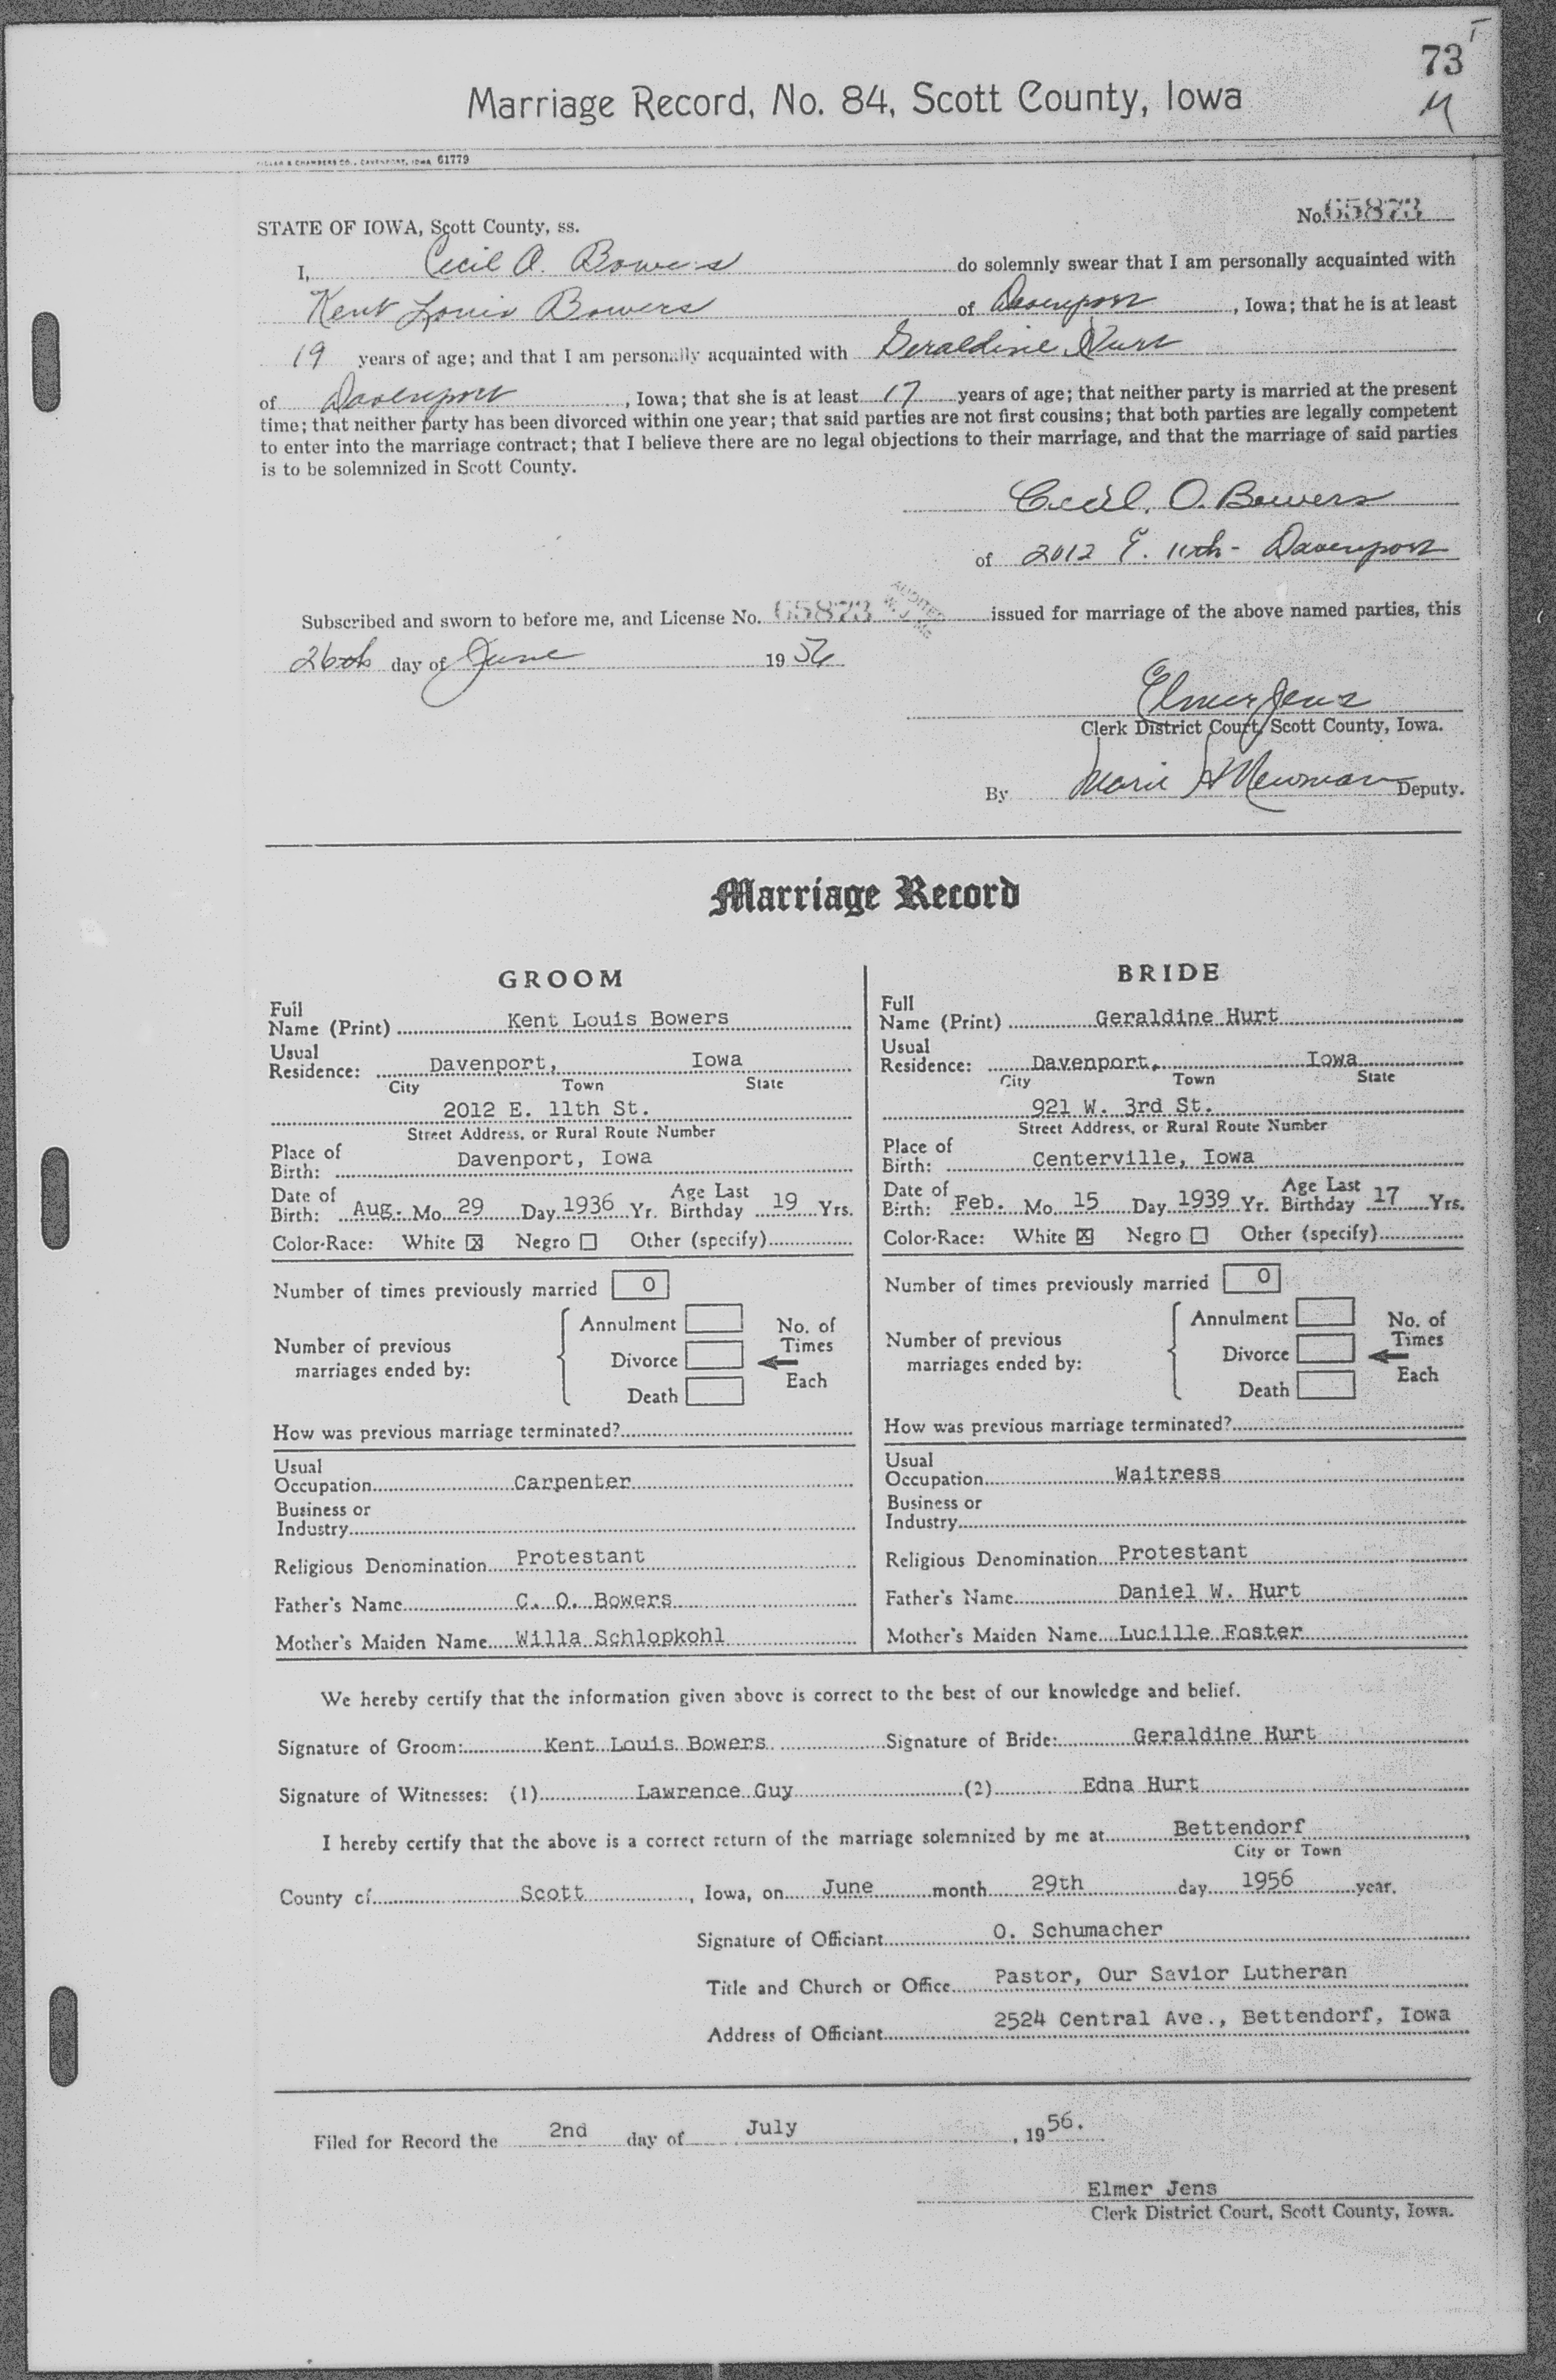 73
M
Marriage Record, No. 84, Scott County, Iowa
& CHAMBERS CO., DAVENPORT, IOWA 61779
No. 65873
STATE OF IOWA, Scott County, ss.
I, Cecil O. Bowers do solemnly swear that I am personally acquainted with
Kent Louis Bowers of Davenport, Iowa; that he is at least
19 years of age; and that I am personally acquainted with Geraldine Hurt
of Davenport, Iowa; that she is at least 17 years of age; that neither party is married at the present
time; that neither party has been divorced within one year; that said parties are not first cousins; that both parties are legally competent
to enter into the marriage contract; that I believe there are no legal objections to their marriage, and that the marriage of said parties
is to be solemnized in Scott County.
Cecil. O. Bowers
of 2012 E. 11th - Davenport
Subscribed and sworn to before me, and License No. 65873 issued for marriage of the above named parties, this
26th day of June 1956
Elmer Jens
Clerk District Court, Scott County, Iowa.
By Marie H Newman Deputy.
Marriage Record
GROOM
Full
Name (Print) Kent Louis Bowers
Usual
Residence: Davenport, Iowa
City Town State
2012 E. 11th St.
Street Address, or Rural Route Number
Place of
Birth: Davenport, Iowa
Date of Age Last
Birth: Aug. Mo. 29 Day 1936 Yr. Birthday 19 Yrs.
Color-Race: White ☒ Negro ☐ Other (specify)
Number of times previously married 0
Annulment No. of
Number of previous Times
Divorce
marriages ended by: Each
Death
How was previous marriage terminated?
Usual
Occupation Carpenter
Business or
Industry
Religious Denomination Protestant
Father's Name C. O. Bowers
Mother's Maiden Name Willa Schlopkohl
BRIDE
Full
Name (Print) Geraldine Hurt
Usual
Residence: Davenport, Iowa
City Town State
921 W. 3rd St.
Street Address, or Rural Route Number
Place of
Birth: Centerville, Iowa
Date of Age Last
Birth: Feb. Mo. 15 Day 1939 Yr. Birthday 17 Yrs.
Color-Race: White ☒ Negro ☐ Other (specify)
Number of times previously married 0
Annulment No. of
Number of previous Times
Divorce
marriages ended by: Each
Death
How was previous marriage terminated?
Usual
Occupation Waitress
Business or
Industry
Religious Denomination Protestant
Father's Name Daniel W. Hurt
Mother's Maiden Name Lucille Foster
We hereby certify that the information given above is correct to the best of our knowledge and belief.
Signature of Groom: Kent Louis Bowers Signature of Bride: Geraldine Hurt
Signature of Witnesses: (1) Lawrence Guy (2) Edna Hurt
I hereby certify that the above is a correct return of the marriage solemnized by me at Bettendorf,
City or Town
County of Scott, Iowa, on June month 29th day 1956 year.
Signature of Officiant O. Schumacher
Title and Church or Office Pastor, Our Savior Lutheran
Address of Officiant 2524 Central Ave., Bettendorf, Iowa
Filed for Record the 2nd day of July, 1956.
Elmer Jens
Clerk District Court, Scott County, Iowa.